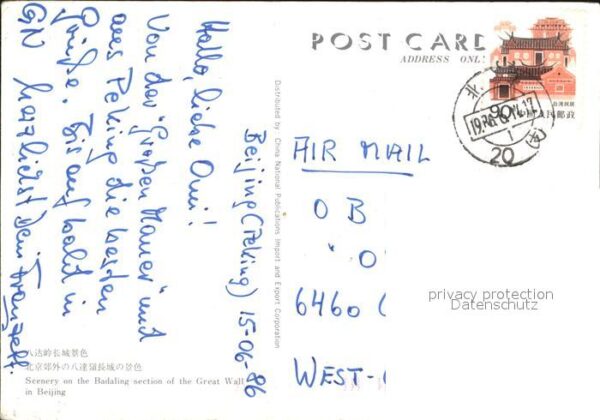 Beijing (Peking) 15-06-86
Hallo, liebe Omi!
Von der "Großen Mauer" und
aus Peking die besten
Grüße. Bis auf bald in
GN herzlichst dein
POST CARD
ADDRESS ONL
Distributed by China National Publications Import and Export Corporation
AIR MAIL
O B
" O
6460 (
WEST-
privacy protection
Datenschutz
台湾民居
人民邮政
90
北
20
八达岭长城景色
北京郊外の八達嶺長城の景色
Scenery on the Badaling section of the Great Wall
in Beijing